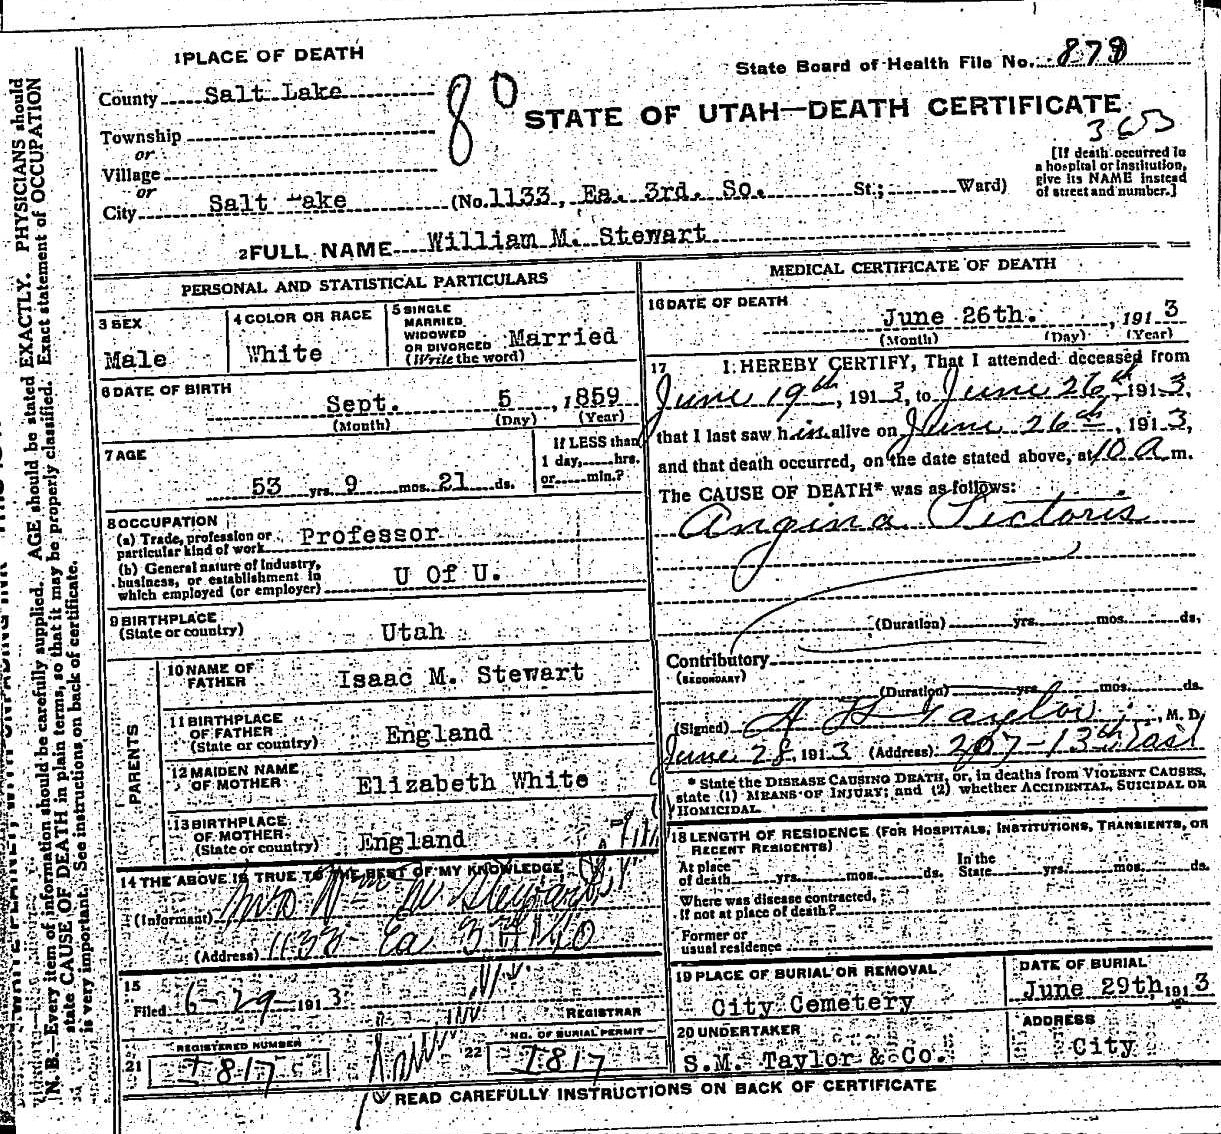 1 PLACE OF DEATH
State Board of Health File No. 879
County Salt Lake
80
STATE OF UTAH—DEATH CERTIFICATE
Township
or
Village
or
[If death occurred in
a hospital or institution,
give its NAME instead
of street and number.]
City Salt Lake (No. 1133, Ea. 3rd. So. St.; Ward)
2 FULL NAME William M. Stewart
PERSONAL AND STATISTICAL PARTICULARS
3 SEX
Male
4 COLOR OR RACE
White
5 SINGLE
MARRIED
WIDOWED
OR DIVORCED
(Write the word)
Married
6 DATE OF BIRTH
Sept. 5, 1859
(Month) (Day) (Year)
7 AGE
53 yrs. 9 mos. 21 ds.
If LESS than
1 day, hrs.
or min.?
8 OCCUPATION
(a) Trade, profession or
particular kind of work Professor
(b) General nature of industry,
business, or establishment in
which employed (or employer) U Of U.
9 BIRTHPLACE
(State or country) Utah
PARENTS
10 NAME OF
FATHER Isaac M. Stewart
11 BIRTHPLACE
OF FATHER
(State or country) England
12 MAIDEN NAME
OF MOTHER Elizabeth White
13 BIRTHPLACE
OF MOTHER
(State or country) England
14 THE ABOVE IS TRUE TO THE BEST OF MY KNOWLEDGE
(Informant) Mrs Wm M Stewart
(Address) 1133 Ea 3rd So
15
Filed 6-29-1913
REGISTRAR
REGISTERED NUMBER
21 1817
NO. OF BURIAL PERMIT
22 1817
MEDICAL CERTIFICATE OF DEATH
16 DATE OF DEATH
June 26th. , 1913
(Month) (Day) (Year)
17 I HEREBY CERTIFY, That I attended deceased from
June 19th, 1913, to June 26th, 1913,
that I last saw him alive on June 26th, 1913,
and that death occurred, on the date stated above, at 10 a m.
The CAUSE OF DEATH* was as follows:
Angina Pectoris
(Duration) yrs. mos. ds.
Contributory
(SECONDARY)
(Duration) yrs. mos. ds.
(Signed) Taylor, M. D.
June 28, 1913 (Address) 207-13th East
* State the DISEASE CAUSING DEATH, or, in deaths from VIOLENT CAUSES,
state (1) MEANS OF INJURY; and (2) whether ACCIDENTAL, SUICIDAL OR
HOMICIDAL.
18 LENGTH OF RESIDENCE (FOR HOSPITALS, INSTITUTIONS, TRANSIENTS, OR
RECENT RESIDENTS)
At place
of death yrs. mos. ds.
In the
State yrs. mos. ds.
Where was disease contracted,
if not at place of death?
Former or
usual residence
19 PLACE OF BURIAL OR REMOVAL
City Cemetery
DATE OF BURIAL
June 29th, 1913
20 UNDERTAKER
S.M. Taylor & Co.
ADDRESS
City
READ CAREFULLY INSTRUCTIONS ON BACK OF CERTIFICATE
N. B.—Every item of information should be carefully supplied. AGE should be stated EXACTLY. PHYSICIANS should
state CAUSE OF DEATH in plain terms, so that it may be properly classified. Exact statement of OCCUPATION
is very important. See instructions on back of certificate.